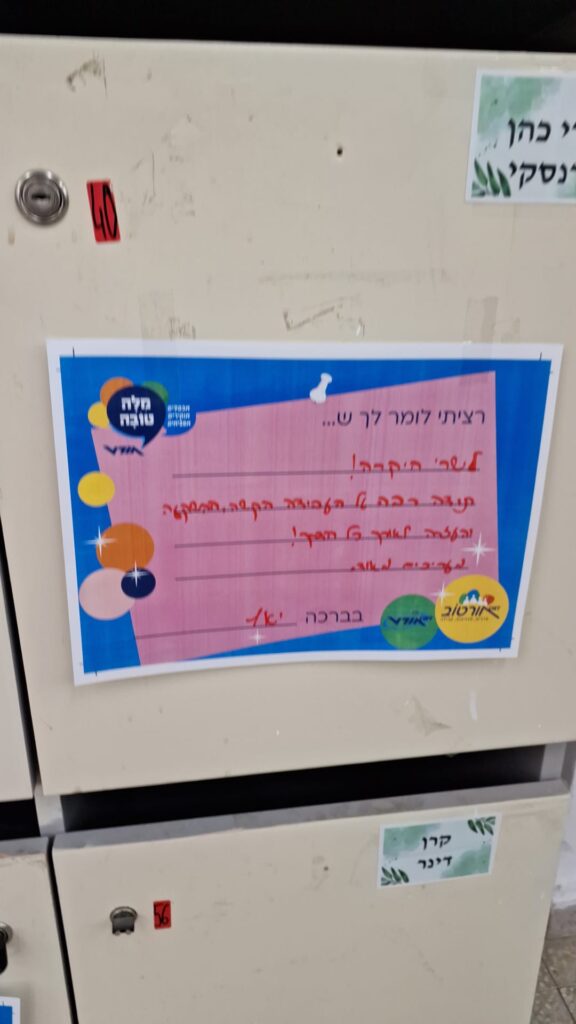 רי כהן
רנסקי
40
מִלָּה
טוֹבָה
אורט
רציתי לומר לך ש...
לשרי היקרה!
תודה רבה על העבודה הקשה, ההשקעה
והעזרה לאורך כל הדרך!
מעריכים מאוד.
בברכה
אורט
אורטוב
קרן
דינר
56